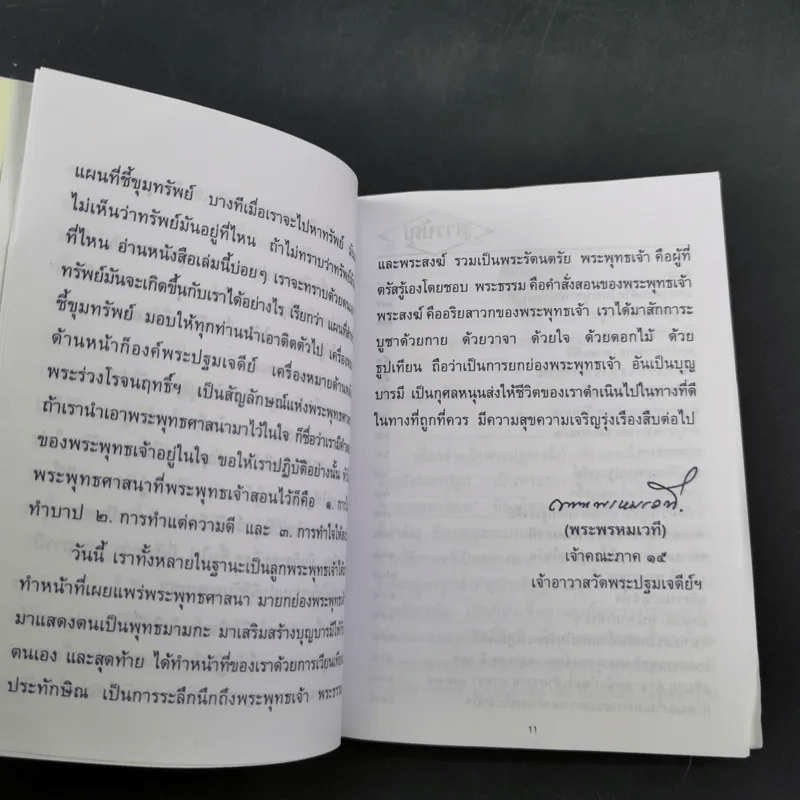 แผนที่ชี้ขุมทรัพย์ บางทีเมื่อเราจะไปหาทรัพย์
ไม่เห็นว่าทรัพย์มันอยู่ที่ไหน ถ้าไม่ทราบว่าทรัพย์
ที่ไหน อ่านหนังสือเล่มนี้บ่อยๆ เราจะทราบด้วยตนเอง
ทรัพย์มันจะเกิดขึ้นกับเราได้อย่างไร เรียกว่า แผนที่
ชี้ขุมทรัพย์ มอบให้ทุกท่านนำเอาติดตัวไป เครื่อง
ด้านหน้าก็องค์พระปฐมเจดีย์ เครื่องหมายด้าน
พระร่วงโรจนฤทธิ์ฯ เป็นสัญลักษณ์แห่งพระพุทธ
ถ้าเรานำเอาพระพุทธศาสนามาไว้ในใจ ก็ชื่อว่าเรามี
ของพระพุทธเจ้าอยู่ในใจ ขอให้เราปฏิบัติอย่างนั้น
พระพุทธศาสนาที่พระพุทธเจ้าสอนไว้ก็คือ ๑.
ทำบาป ๒. การทำแต่ความดี และ ๓. การทำใจให้
วันนี้ เราทั้งหลายในฐานะเป็นลูกพระพุทธเจ้า
ทำหน้าที่เผยแพร่พระพุทธศาสนา มายกย่องพระพุทธ
มาแสดงตนเป็นพุทธมามกะ มาเสริมสร้างบุญบารมี
ตนเอง และสุดท้าย ได้ทำหน้าที่ของเราด้วยการเวียนเทียน
ประทักษิณ เป็นการระลึกนึกถึงพระพุทธเจ้า พระธรรม
และพระสงฆ์ รวมเป็นพระรัตนตรัย พระพุทธเจ้า คือผู้ที่
ตรัสรู้เองโดยชอบ พระธรรม คือคำสั่งสอนของพระพุทธเจ้า
พระสงฆ์ คืออริยสาวกของพระพุทธเจ้า เราได้มาสักการะ
บูชาด้วยกาย ด้วยวาจา ด้วยใจ ด้วยดอกไม้ ด้วย
ธูปเทียน ถือว่าเป็นการยกย่องพระพุทธเจ้า อันเป็นบุญ
บารมี เป็นกุศลหนุนส่งให้ชีวิตของเราดำเนินไปในทางที่ดี
ในทางที่ถูกที่ควร มีความสุขความเจริญรุ่งเรืองสืบต่อไป
(พระพรหมเวที)
เจ้าคณะภาค ๑๕
เจ้าอาวาสวัดพระปฐมเจดีย์ฯ
11